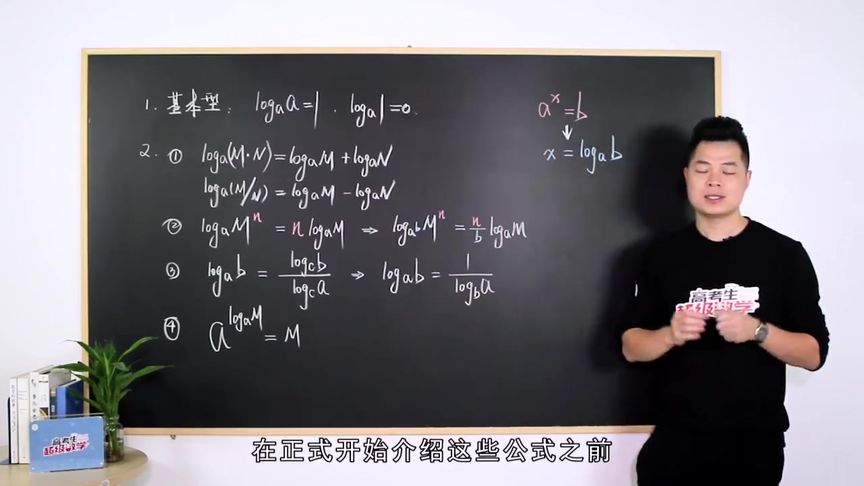 1. 基本型: logₐa=1, logₐ1=0.
aˣ=b
↓
x=logₐb
2. ① logₐ(M·N)=logₐM+logₐN
logₐ(M/N)=logₐM-logₐN
② logₐMⁿ=n logₐM ⇒ log_{a^b}Mⁿ=n/b logₐM
③ logₐb=log_c b/log_c a ⇒ logₐb=1/log_b a
④ a^{logₐM}=M
高考生
超级数学
高考生
超级数学
在正式开始介绍这些公式之前